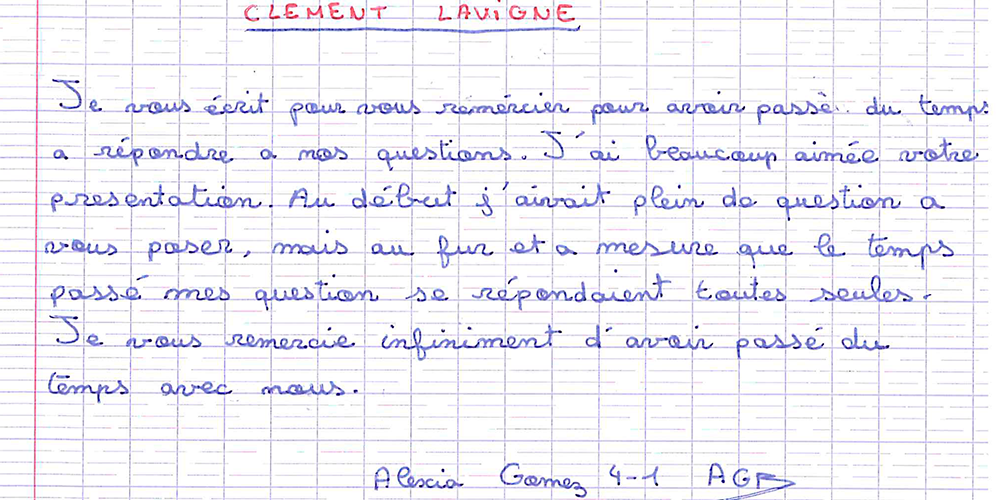 CLEMENT LAVIGNE
Je vous écrit pour vous remércier pour avoir passè du temps
a répondre a nos questions. J'ai beaucoup aimée votre
presentation. Au début j'aivait plein de question a
vous poser, mais au fur et a mesure que le temps
passé mes question se répondaient toutes seules.
Je vous remercie infiniment d'avoir passé du
temps avec nous.
Alexia Gomez 4-1 AGF